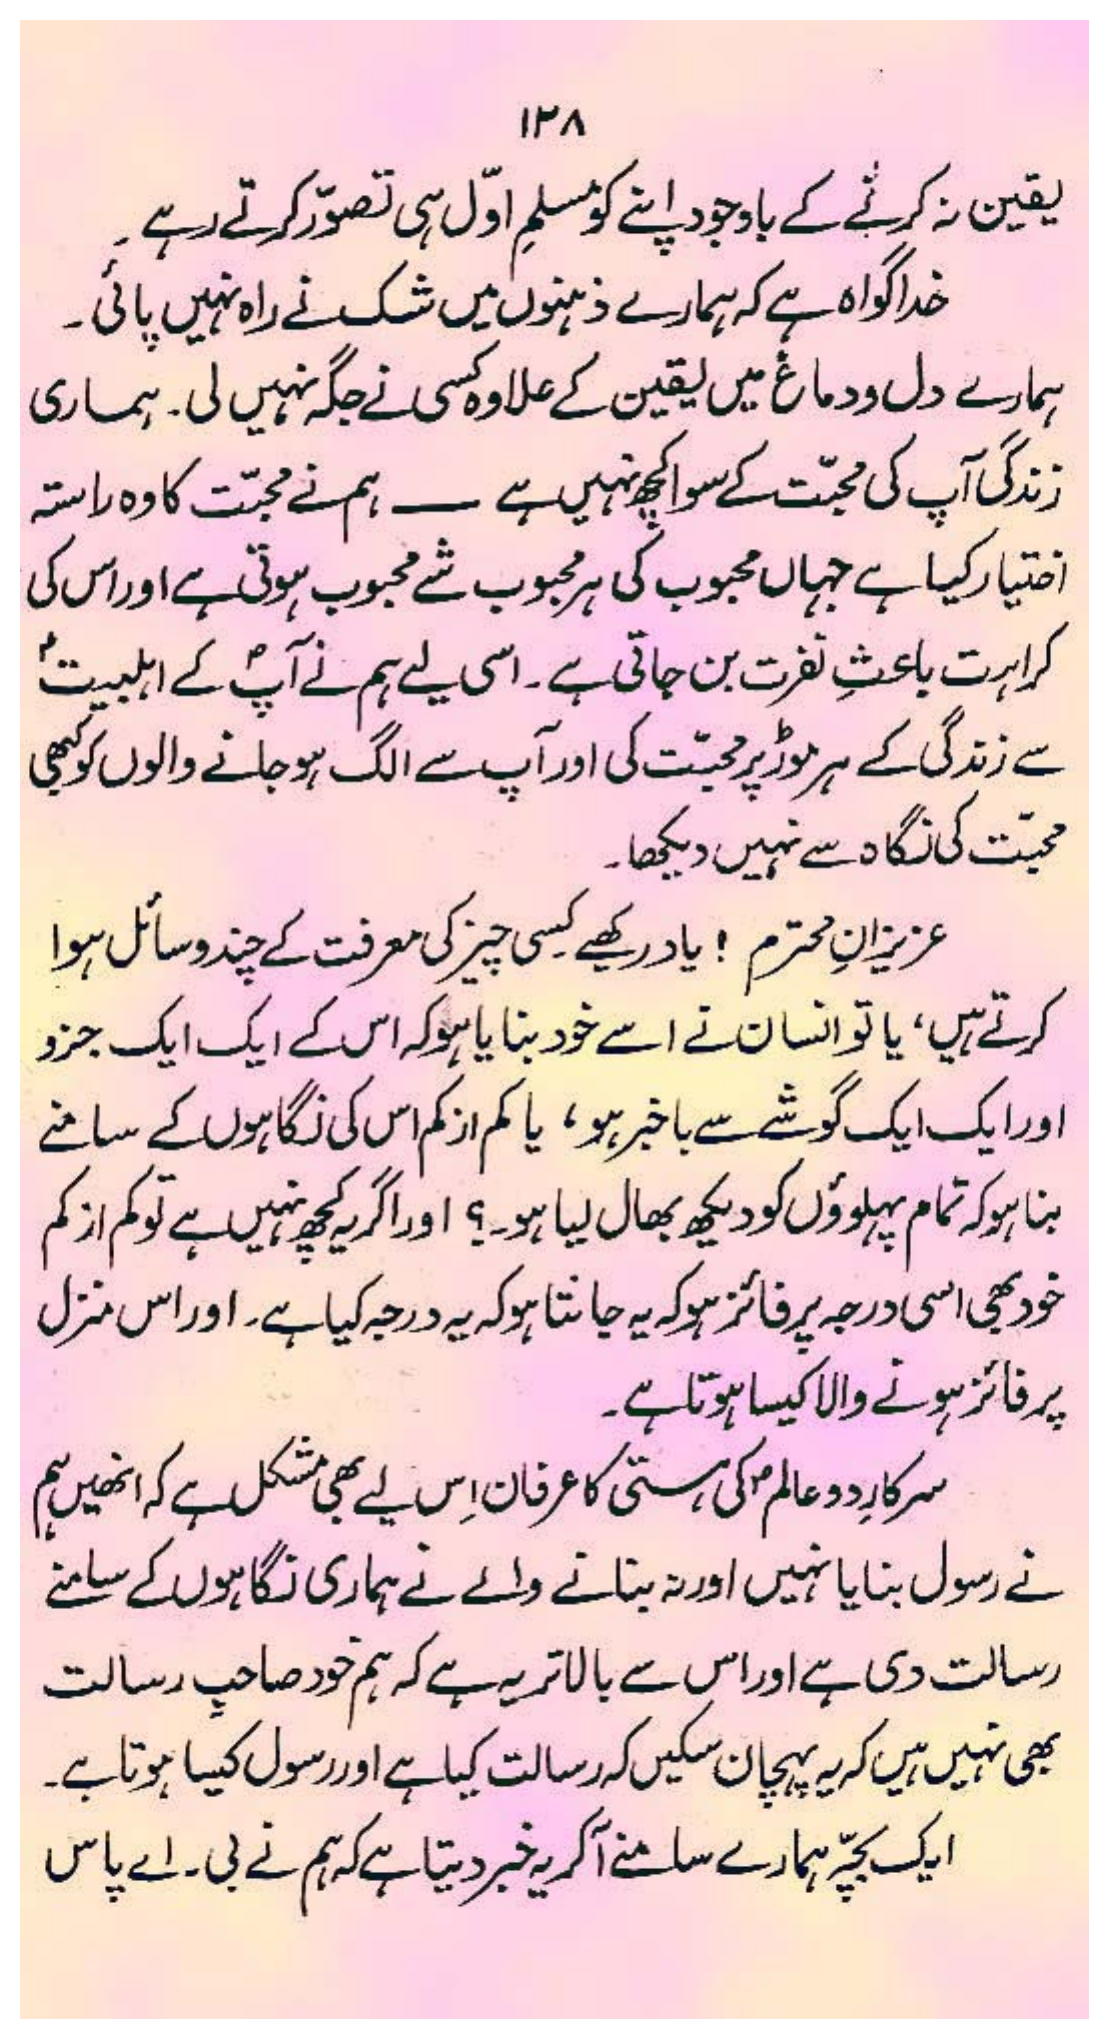 ۱۳۸
یقین نہ کرنے کے باوجود اپنے کو مسلمِ اوّل ہی تصوّر کرتے رہے۔
خدا گواہ ہے کہ ہمارے ذہنوں میں شک نے راہ نہیں پائی۔
ہمارے دل و دماغ میں یقین کے علاوہ کسی نے جگہ نہیں لی۔ ہماری
زندگی آپ کی محبّت کے سوا کچھ نہیں ہے ـــ ہم نے محبّت کا وہ راستہ
اختیار کیا ہے جہاں محبوب کی ہر محبوب شے محبوب ہوتی ہے اور اس کی
کراہت باعثِ نفرت بن جاتی ہے۔ اسی لیے ہم نے آپؐ کے اہلبیتؑ
سے زندگی کے ہر موڑ پر محبّت کی اور آپ سے الگ ہو جانے والوں کو کبھی
محبّت کی نگاہ سے نہیں دیکھا۔
عزیزانِ محترم ! یاد رکھیے کسی چیز کی معرفت کے چند وسائل ہوا
کرتے ہیں، یا تو انسان نے اسے خود بنایا ہو کہ اس کے ایک ایک جزو
اور ایک ایک گوشے سے باخبر ہو، یا کم از کم اس کی نگاہوں کے سامنے
بنا ہو کہ تمام پہلوؤں کو دیکھ بھال لیا ہو۔؟ اور اگر یہ کچھ نہیں ہے تو کم از کم
خود بھی اسی درجہ پر فائز ہو کہ یہ جانتا ہو کہ یہ درجہ کیا ہے۔ اور اس منزل
پر فائز ہونے والا کیسا ہوتا ہے۔
سرکارِ دو عالمؐ کی ہستی کا عرفان اِس لیے بھی مشکل ہے کہ انھیں ہم
نے رسول بنایا نہیں اور نہ بنانے والے نے ہماری نگاہوں کے سامنے
رسالت دی ہے اور اس سے بالاتر یہ ہے کہ ہم خود صاحبِ رسالت
بھی نہیں ہیں کہ یہ پہچان سکیں کہ رسالت کیا ہے اور رسول کیسا ہوتا ہے۔
ایک بچّہ ہمارے سامنے آ کر یہ خبر دیتا ہے کہ ہم نے بی۔ اے پاس